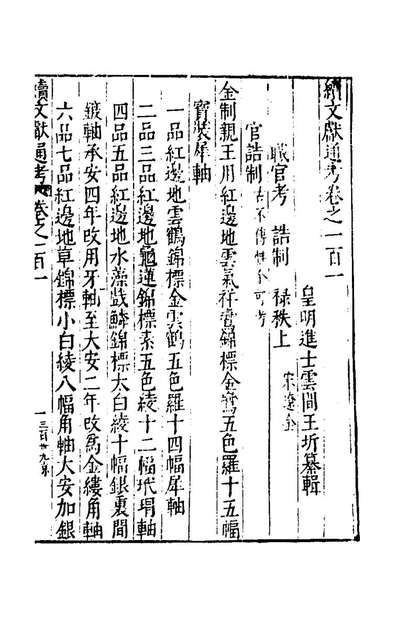 續文獻通考卷之一百一
皇明進士雲間王圻纂輯
職官考　誥制　祿秩上
宋遼金
官誥制
金制親王用紅邊地雲氣祥鸞錦褾金鸞五色羅十五幅
寶裝犀軸
一品紅邊地雲鶴錦褾金雲鶴五色羅十四幅犀軸
二品三品紅邊地龜蓮錦褾素五色綾十二幅玳瑁軸
四品五品紅邊地水藻戲鱗錦褾大白綾十幅銀裹間
鍍軸承安四年改用牙軸至大安二年改爲金縷角軸
六品七品紅邊地草錦褾小白綾八幅角軸大安加銀
續文獻通考　卷之一百一
一